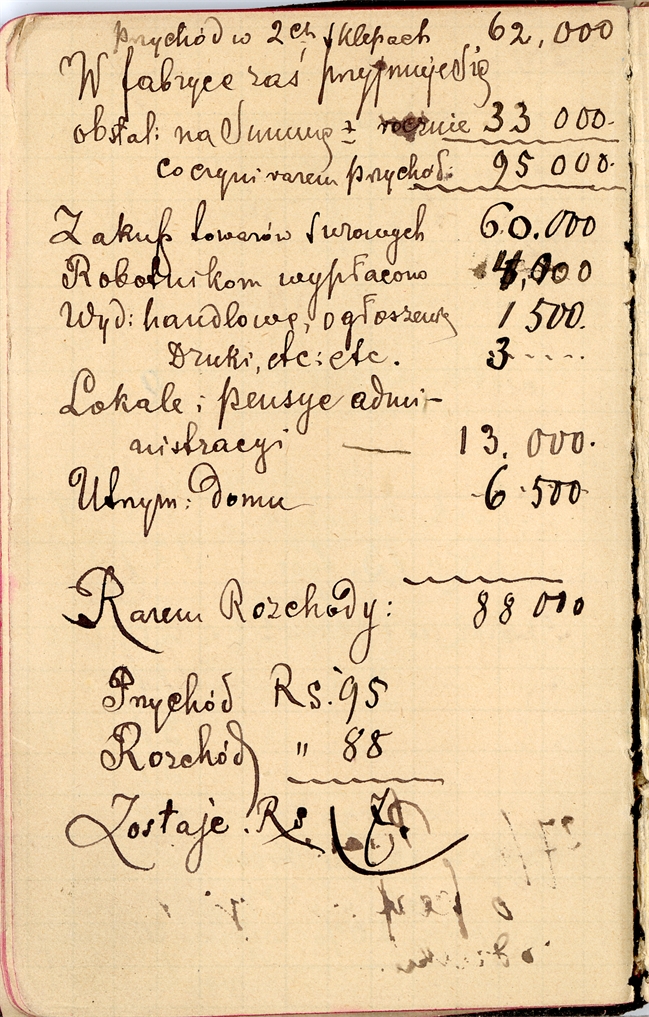 Przychód w 2ch sklepach 62,000
W fabryce zaś przyjmuje się
obstal: na Summę ± rocznie 33 000.
co czyni razem przychód: 95 000.
Zakup towarów surowych 60.000
Robotnikom wypłacono 000
Wyd: handlowe, ogłoszenia 1 500.
Druki, etc: etc. 3 - - - -
Lokale i pensye admi-
nistracyi — 13. 000.
Utrzym: Domu 6.500
Razem Rozchody: 88 000
Przychód Rs. 95
Rozchód " 88
Zostaje. Rs. 7.